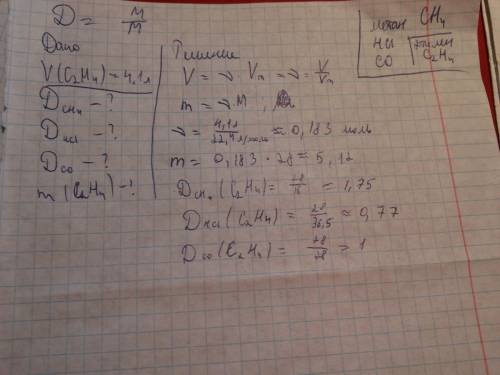 D = M/M
Дано
V(C₂H₄) = 4,1л
D CH₄ - ?
D HCl - ?
D CO - ?
m (C₂H₄) - ?
Решение
V = ν · Vm => ν = V/Vm
m = ν · M ;
ν = 4,1л / 22,4 л/моль ≈ 0,183 моль
m = 0,183 · 28 ≈ 5,12
D CH₄ (C₂H₄) = 28/16 = 1,75
D HCl (C₂H₄) = 28/36,5 ≈ 0,77
D CO (C₂H₄) = 28/28 = 1
метан CH₄
HCl
CO
этилен
C₂H₄